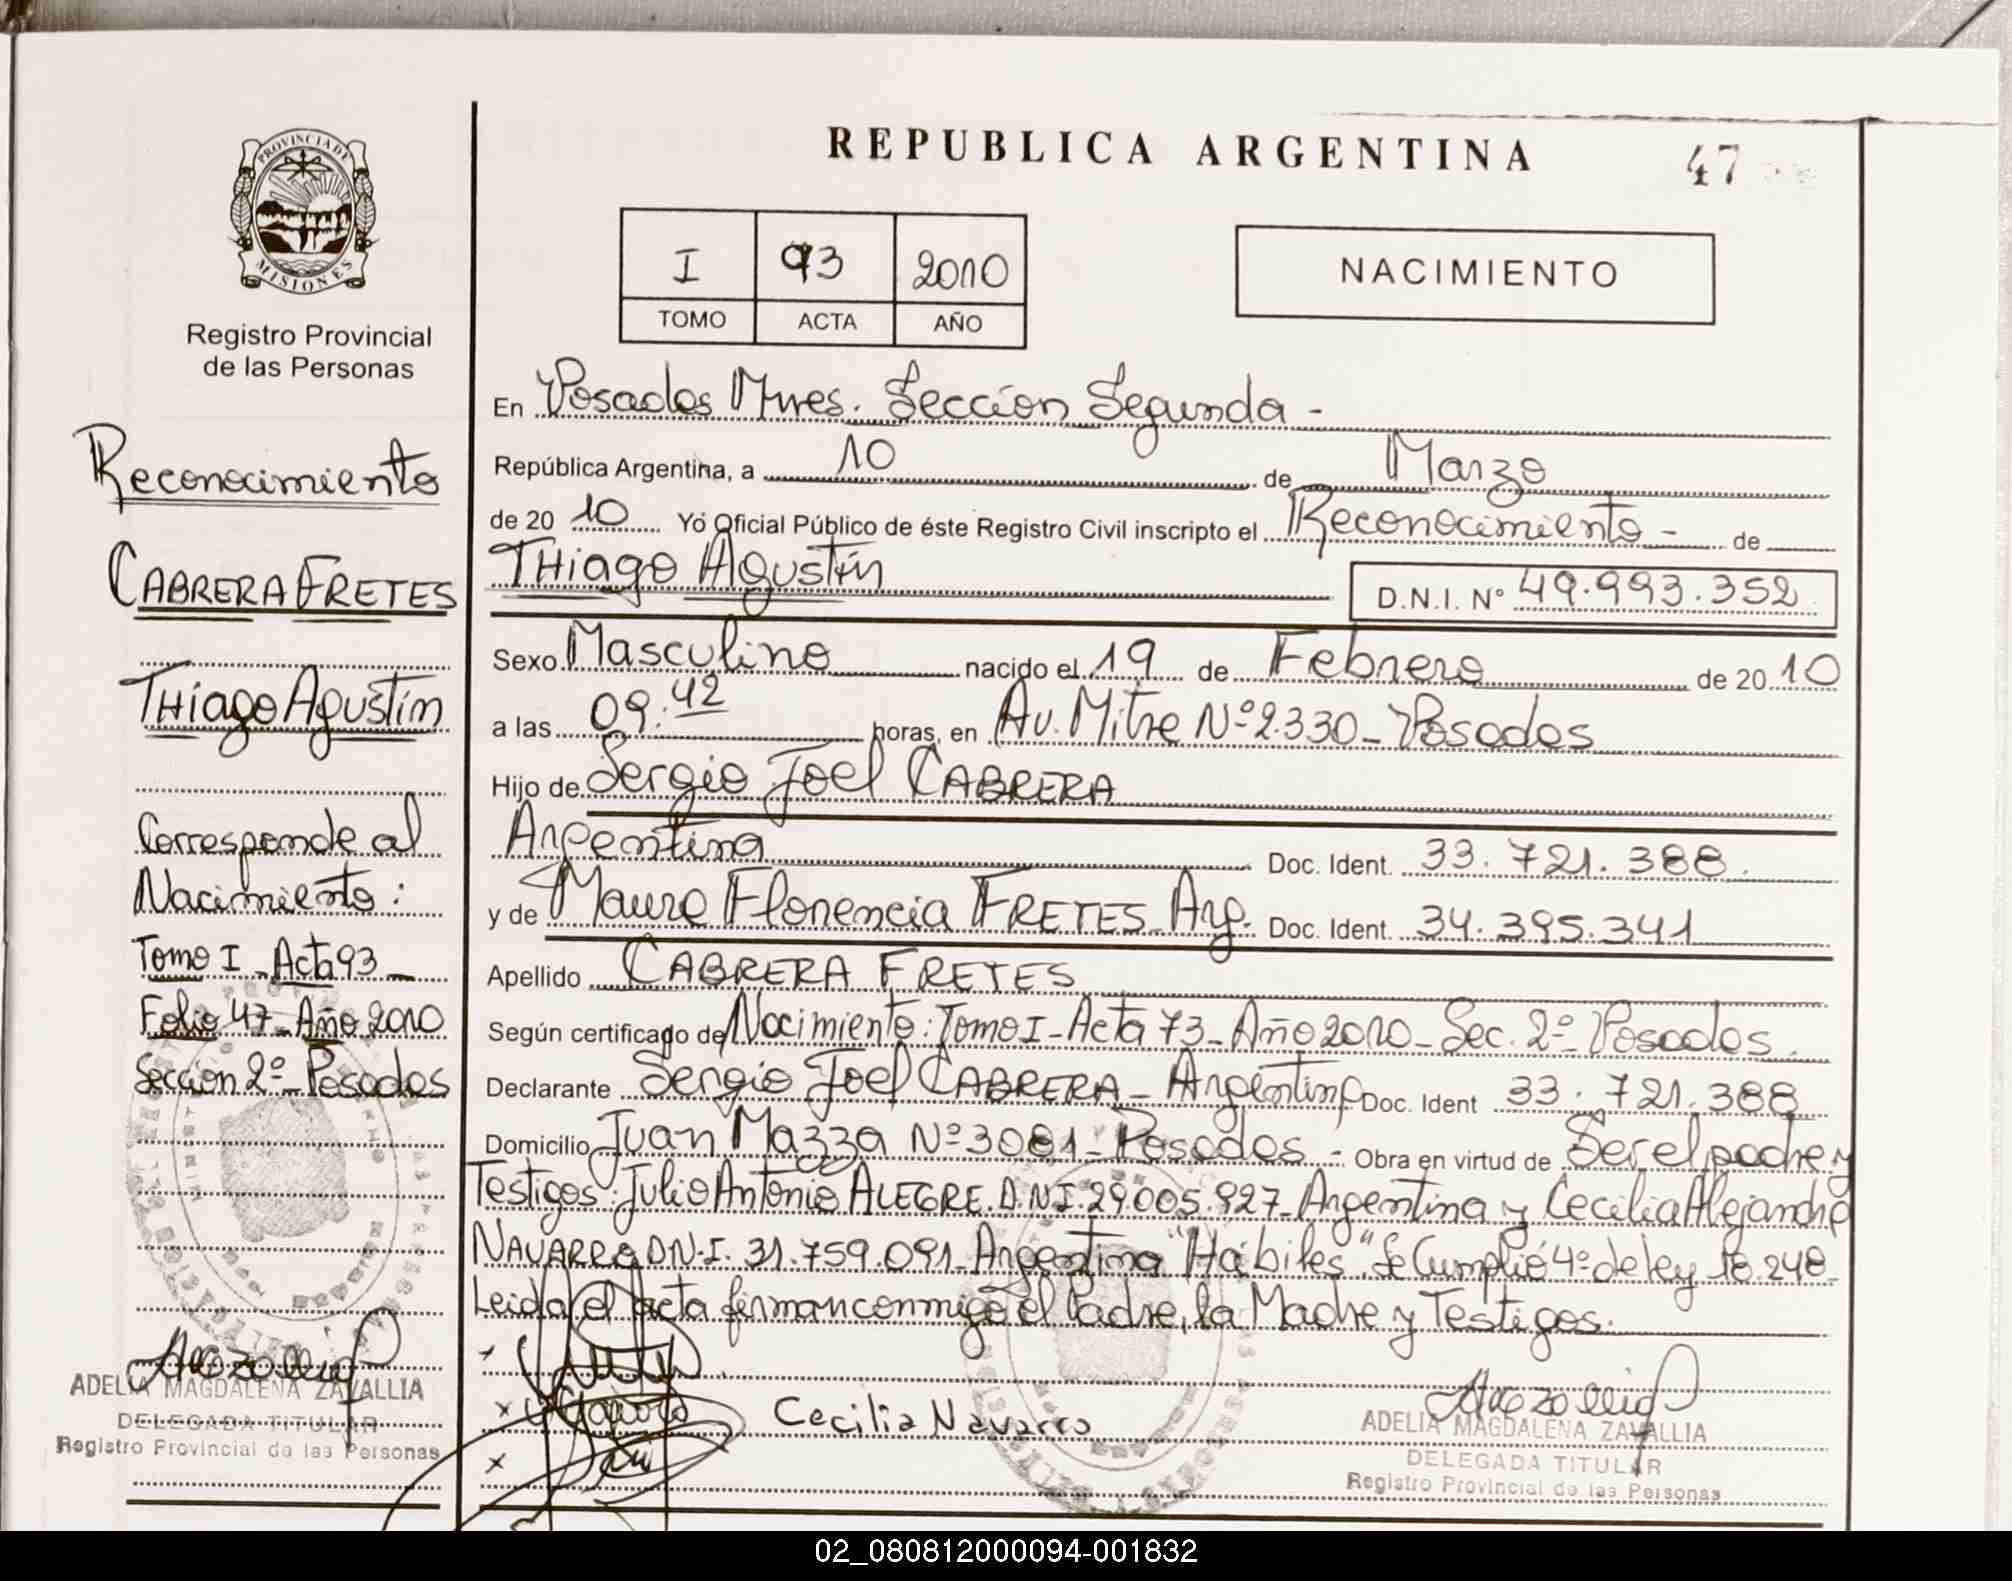 PROVINCIA DE
MISIONES
Registro Provincial
de las Personas
Reconocimiento
CABRERA FRETES
THiago Agustín
Corresponde al
Nacimiento:
Tomo I Acta 93
Folio 47 - Año 2010
Sección 2º - Posadas
ADELIA MAGDALENA ZAVALLIA
DELEGADA TITULAR
Registro Provincial de las Personas
REPUBLICA ARGENTINA
47
I 93 2010
TOMO ACTA AÑO
NACIMIENTO
En Posadas Mnes. Sección Segunda -
República Argentina, a 10 de Marzo
de 2010 Yo Oficial Público de éste Registro Civil inscripto el Reconocimiento - de
THiago Agustín D.N.I. Nº 49.993.352
Sexo Masculino nacido el 19 de Febrero de 2010
a las 09:42 horas, en Av. Mitre Nº 2.330 - Posadas
Hijo de Sergio Joel CABRERA
Argentina Doc. Ident. 33.721.388.
y de Maura Florencia FRETES - Arg. Doc. Ident. 34.395.341
Apellido CABRERA FRETES
Según certificado de Nacimiento: Tomo I - Acta 73 - Año 2010 - Sec. 2º Posadas.
Declarante Sergio Joel CABRERA - Argentina Doc. Ident 33.721.388
Domicilio Juan Mazza Nº 3081 - Posadas - Obra en virtud de Ser el padre y
Testigos: Julio Antonio ALEGRE. D.N.I. 29.005.927 - Argentina y Cecilia Alejandra
NAVARRO D.N.I. 31.759.091 - Argentina "Hábiles". Se Cumplió 4º de ley 18.248 -
Leída el acta firman conmigo el Padre, la Madre y Testigos.
x
x
Cecilia Navarro
x
ADELIA MAGDALENA ZAVALLIA
DELEGADA TITULAR
Registro Provincial de las Personas
02_080812000094-001832